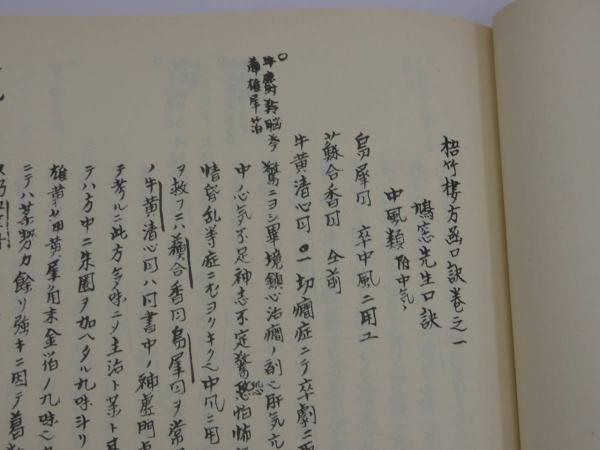 梧竹樓方函口訣卷之一
鳩窓先生口訣
中風類 附中気
烏犀円 卒中風ニ用ユ
蘇合香円 仝前
牛黄清心円 一切癇症ニテ卒劇ニ
驚ニヨシ畢境鎮心治癇ノ剤也肝気
牛麝羚脳岑
蒲雄犀箔
中心気不足神志不定驚恐怕怖
情昏乱等症ニ中風ニ用
ヲ救フニハ蘓合香円烏犀円ヲ常
ノ牛黄清心円ハ円書中ノ神虚門
テ考ルニ此方多味ニメ主治ト薬ト
テハ方中ニ朱圏ヲ加ヘタル九味斗リ
雄黄 黄犀角末金箔ノ九味
ニテハ薬勢力餘リ強キニ因テ葛